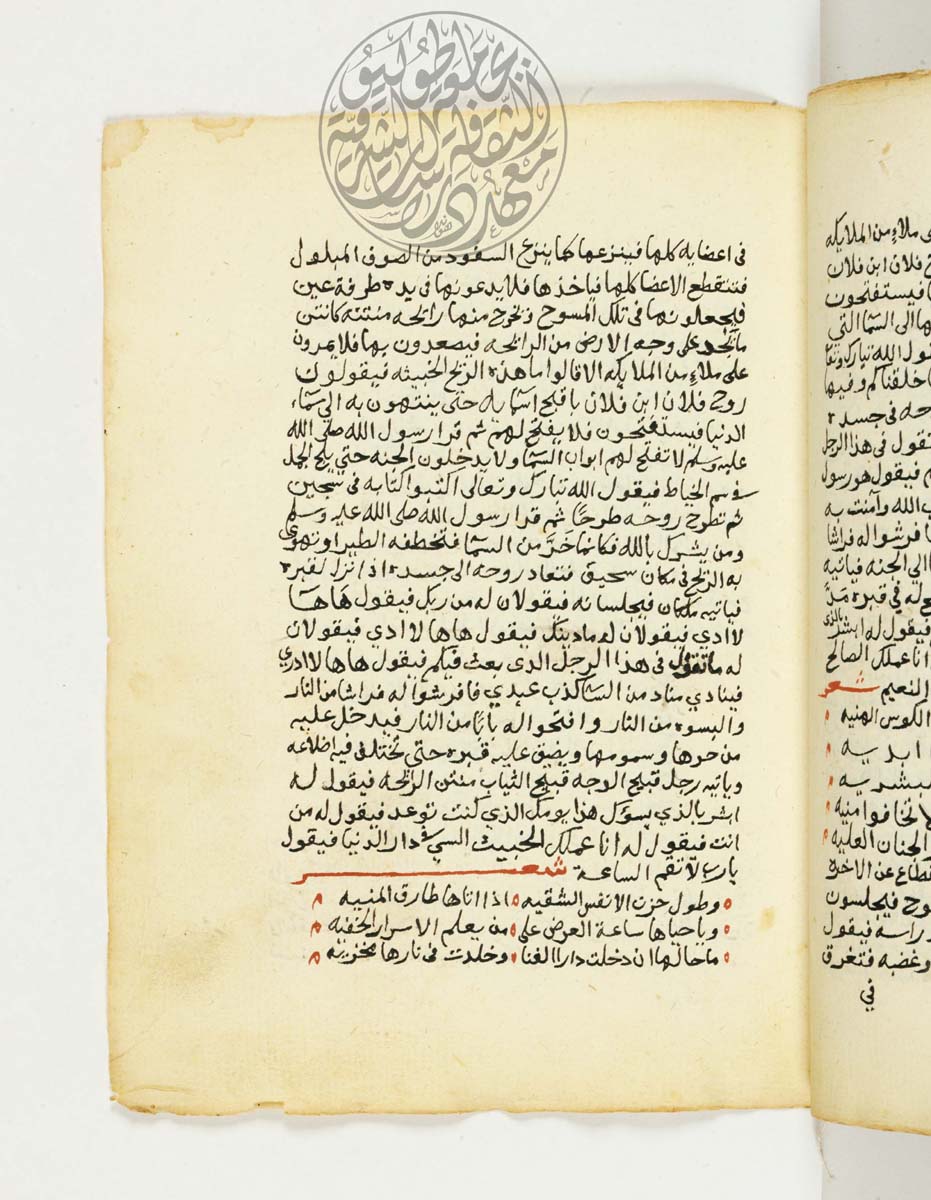 في اعضايه كلها فينزعها كما ينزع السفود من الصوف المبلول
فتنقطع الاعضا كلها فياخذها فلا يدعونها في يده طرفة عين
فيجعلونها في تلك المسوح ويخرج منها رايحه منتنه كانتن
ما تجد على وجه الارض من الرايحه فيصعدون بها فلا يمرون
على ملاءٍ من الملايكه الا قالوا ما هذه الريح الخبيثه فيقولون
روح فلان ابن فلان باقبح اسمايه حتى ينتهون به الي سماء
الدنيا فيستفتحون فلا يفتح لهم ثم قرا رسول الله صلى الله
عليه وسلم لا تفتح لهم ابواب السما ولا يدخلون الجنه حتي يلج الجمل
في سم الخياط فيقول الله تبارك وتعالى اكتبوا كتابه في سجين
ثم تطرح روحه طرحًا ثم قرا رسول الله صلى الله عليه وسلم
ومن يشرك بالله فكانما خرَّ من السما فتخطفه الطير او تهوي
به الريح في مكان سحيق فتعاد روحه الى جسده اذا نزل لقبره
فياتيه ملكان فيجلسانه فيقولان له من ربك فيقول هَاهَا
لا ادي فيقولان له ما دينك فيقول هاها لا ادي فيقولان
له ما تقول في هذا الرجل الذى بعث فيكم فيقول هاها لا ادري
فينادي مناد من السما كذب عبدي فافرشوا له فراشا من النار
والبسوه من النار وافتحوا له بابًا من النار فيدخل عليه
من حرها وسمومها ويضيق عليه قبره حتي تختلف فيه اضلاعه
وياتيه رجل قبيح الوجه قبيح الثياب منتن الريحه فيقول له
ابشر بالذي يسؤك هذا يومك الذي كنت توعد فيقول له من
انت فيقول له انا عملك الخبيث السي في دار الدنيا فيقول
يا رب لا تقم الساعة شعر
وطول حزن الانفس الشقيه اذا اتاها طارق المنيه
ويا حياها ساعة العرض على من يعلم الاسرار الخفيه
ما حالها ان دخلت دار الفنا وخلدت في نارها مخزيه
ملاءٍ من الملايكه
فلان ابن فلان
فيستفتحون
الى السما التي
الله تبارك وتعا
خلقناكم وفيها
في جسده
تقول في هذا الرجل
فيقول هو رسول
الله وآمنت به
فرشوا له فراشا
الي الجنه فياتيه
له في قبره مَدَّ
فيقول له ابشر بالذي
انا عملك الصالح
شعر
الكوس الهنيه
ابديه
لا تخافوا منيه
الجنان العليه
عن الاخره
فيجلسون
راسه فيقول
وغضبه فتغرق
في